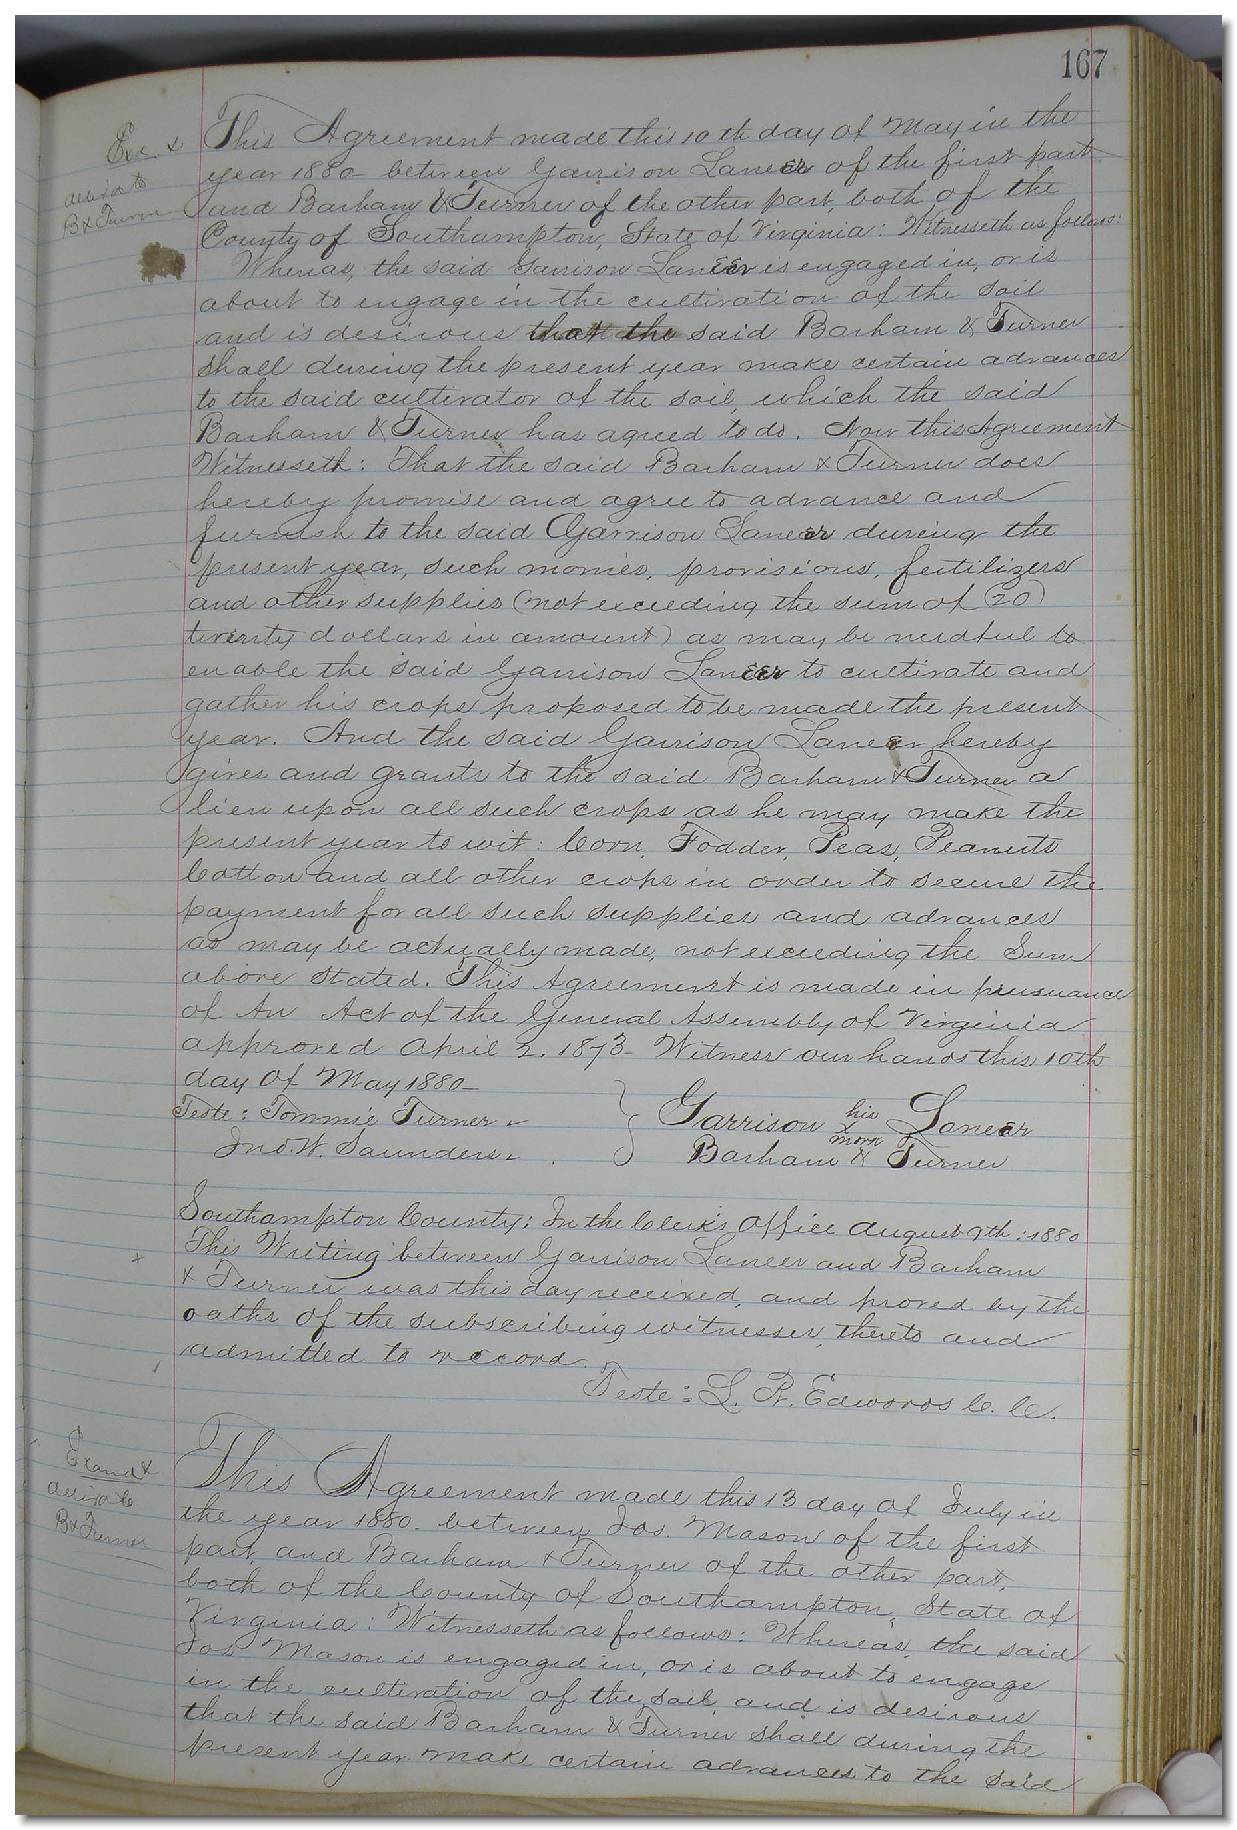 167
Exd. &
deliv'd to
B & Turner
This Agreement made this 10th day of May in the
year 1880 between Garrison Laneer of the first part
and Barham & Turner of the other part, both of the
County of Southampton, State of Virginia: Witnesseth as follows:
Whereas, the said Garrison Laneer is engaged in, or is
about to engage in the cultivation of the soil
and is desirous that the said Barham & Turner
shall during the present year make certain advances
to the said cultivator of the soil, which the said
Barham & Turner has agreed to do. Now this Agreement
Witnesseth: That the said Barham & Turner does
hereby promise and agree to advance and
furnish to the said Garrison Laneer during the
present year, such monies, provisions, fertilizers
and other supplies (not exceeding the sum of (20)
twenty dollars in amount) as may be needful to
enable the said Garrison Laneer to cultivate and
gather his crops proposed to be made the present
year. And the said Garrison Laneer hereby
gives and grants to the said Barham & Turner a
lien upon all such crops as he may make the
present year to wit: Corn, Fodder, Peas, Peanuts
Cotton and all other crops in order to secure the
payment for all such supplies and advances
as may be actually made, not exceeding the Sum
above stated. This Agreement is made in pursuance
of An Act of the General Assembly of Virginia
approved April 2, 1873 - Witness our hands this 10th
day of May 1880 -
Teste: Tommie Turner -
Jno. W. Saunders -
Garrison his x mark Laneer
Barham & Turner
Southampton County: In the Clerk's Office August 9th: 1880
This Writing between Garrison Laneer and Barham
& Turner was this day received, and proved by the
oaths of the subscribing witnesses thereto and
admitted to record.
Teste: L. R. Edwards C. C.
Exam'd &
deliv'd to
B & Turner
This Agreement made this 13 day of July in
the year 1880. between Jos. Mason of the first
part, and Barham & Turner of the other part,
both of the County of Southampton, State of
Virginia: Witnesseth as follows: Whereas, the said
Jos Mason is engaged in, or is about to engage
in the cultivation of the soil, and is desirous
that the said Barham & Turner shall during the
present year make certain advances to the said